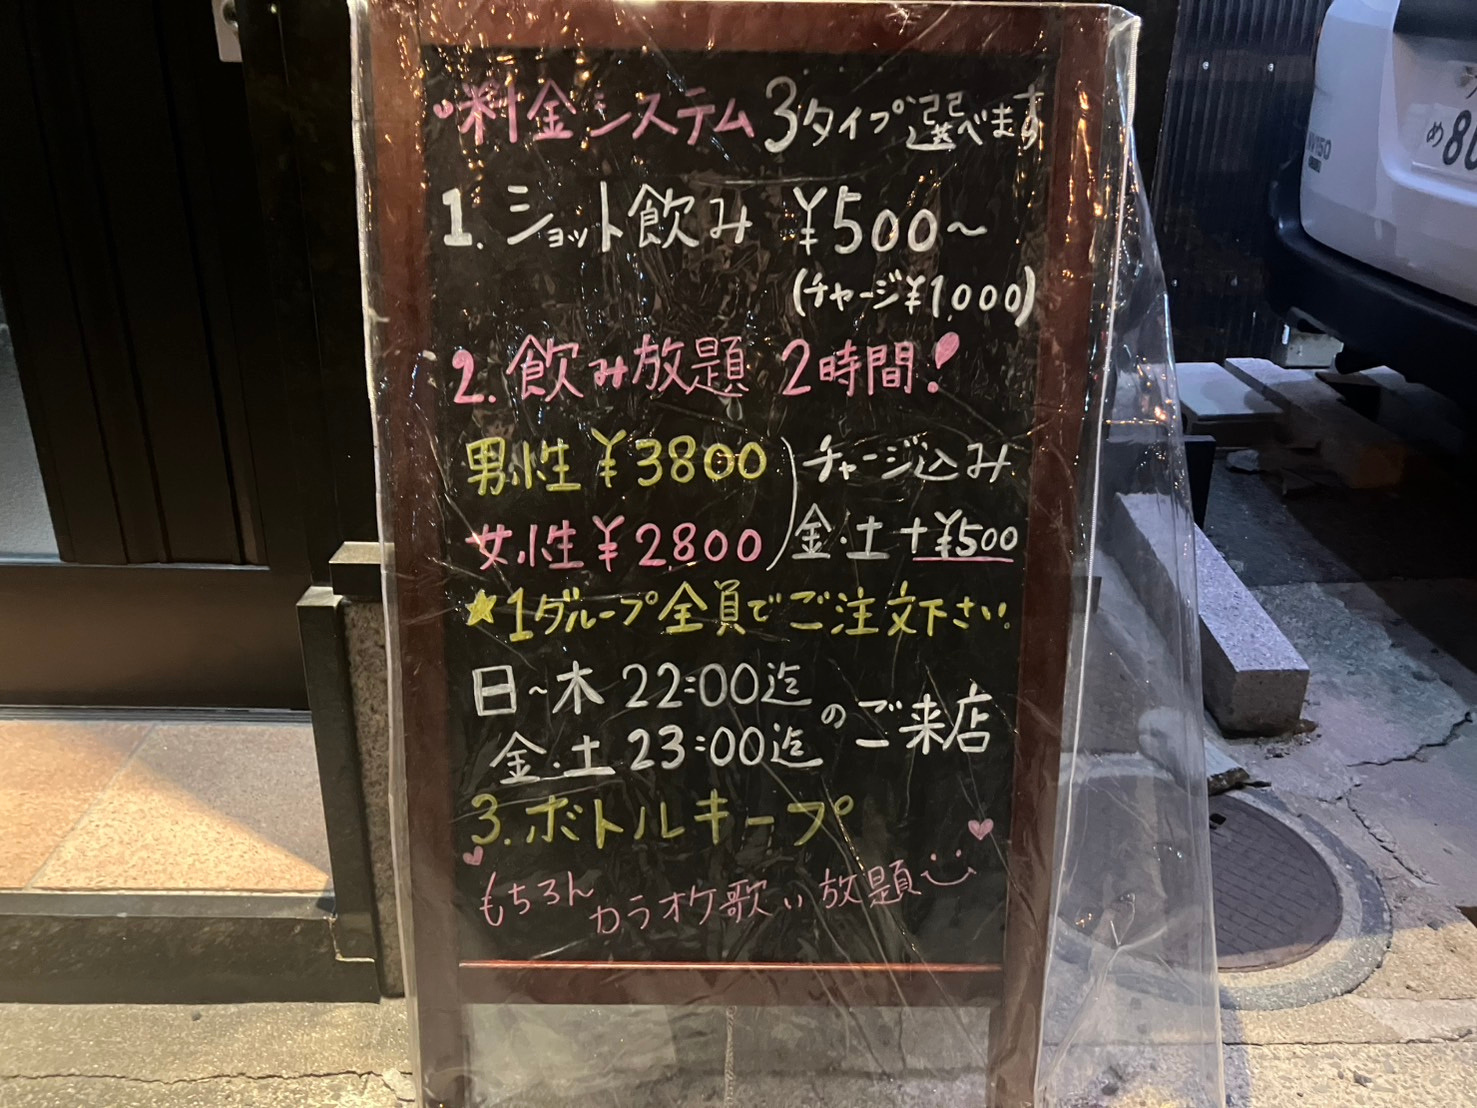 料金システム 3タイプ選べます
1. ショット飲み ¥500～
(チャージ¥1,000)
2. 飲み放題 2時間!
男性 ¥3800
女性 ¥2800
チャージ込み
金・土 +¥500
★1グループ全員でご注文下さい
日～木 22:00迄
金・土 23:00迄
のご来店
3. ボトルキープ
もちろん カラオケ歌い放題
NV150
め